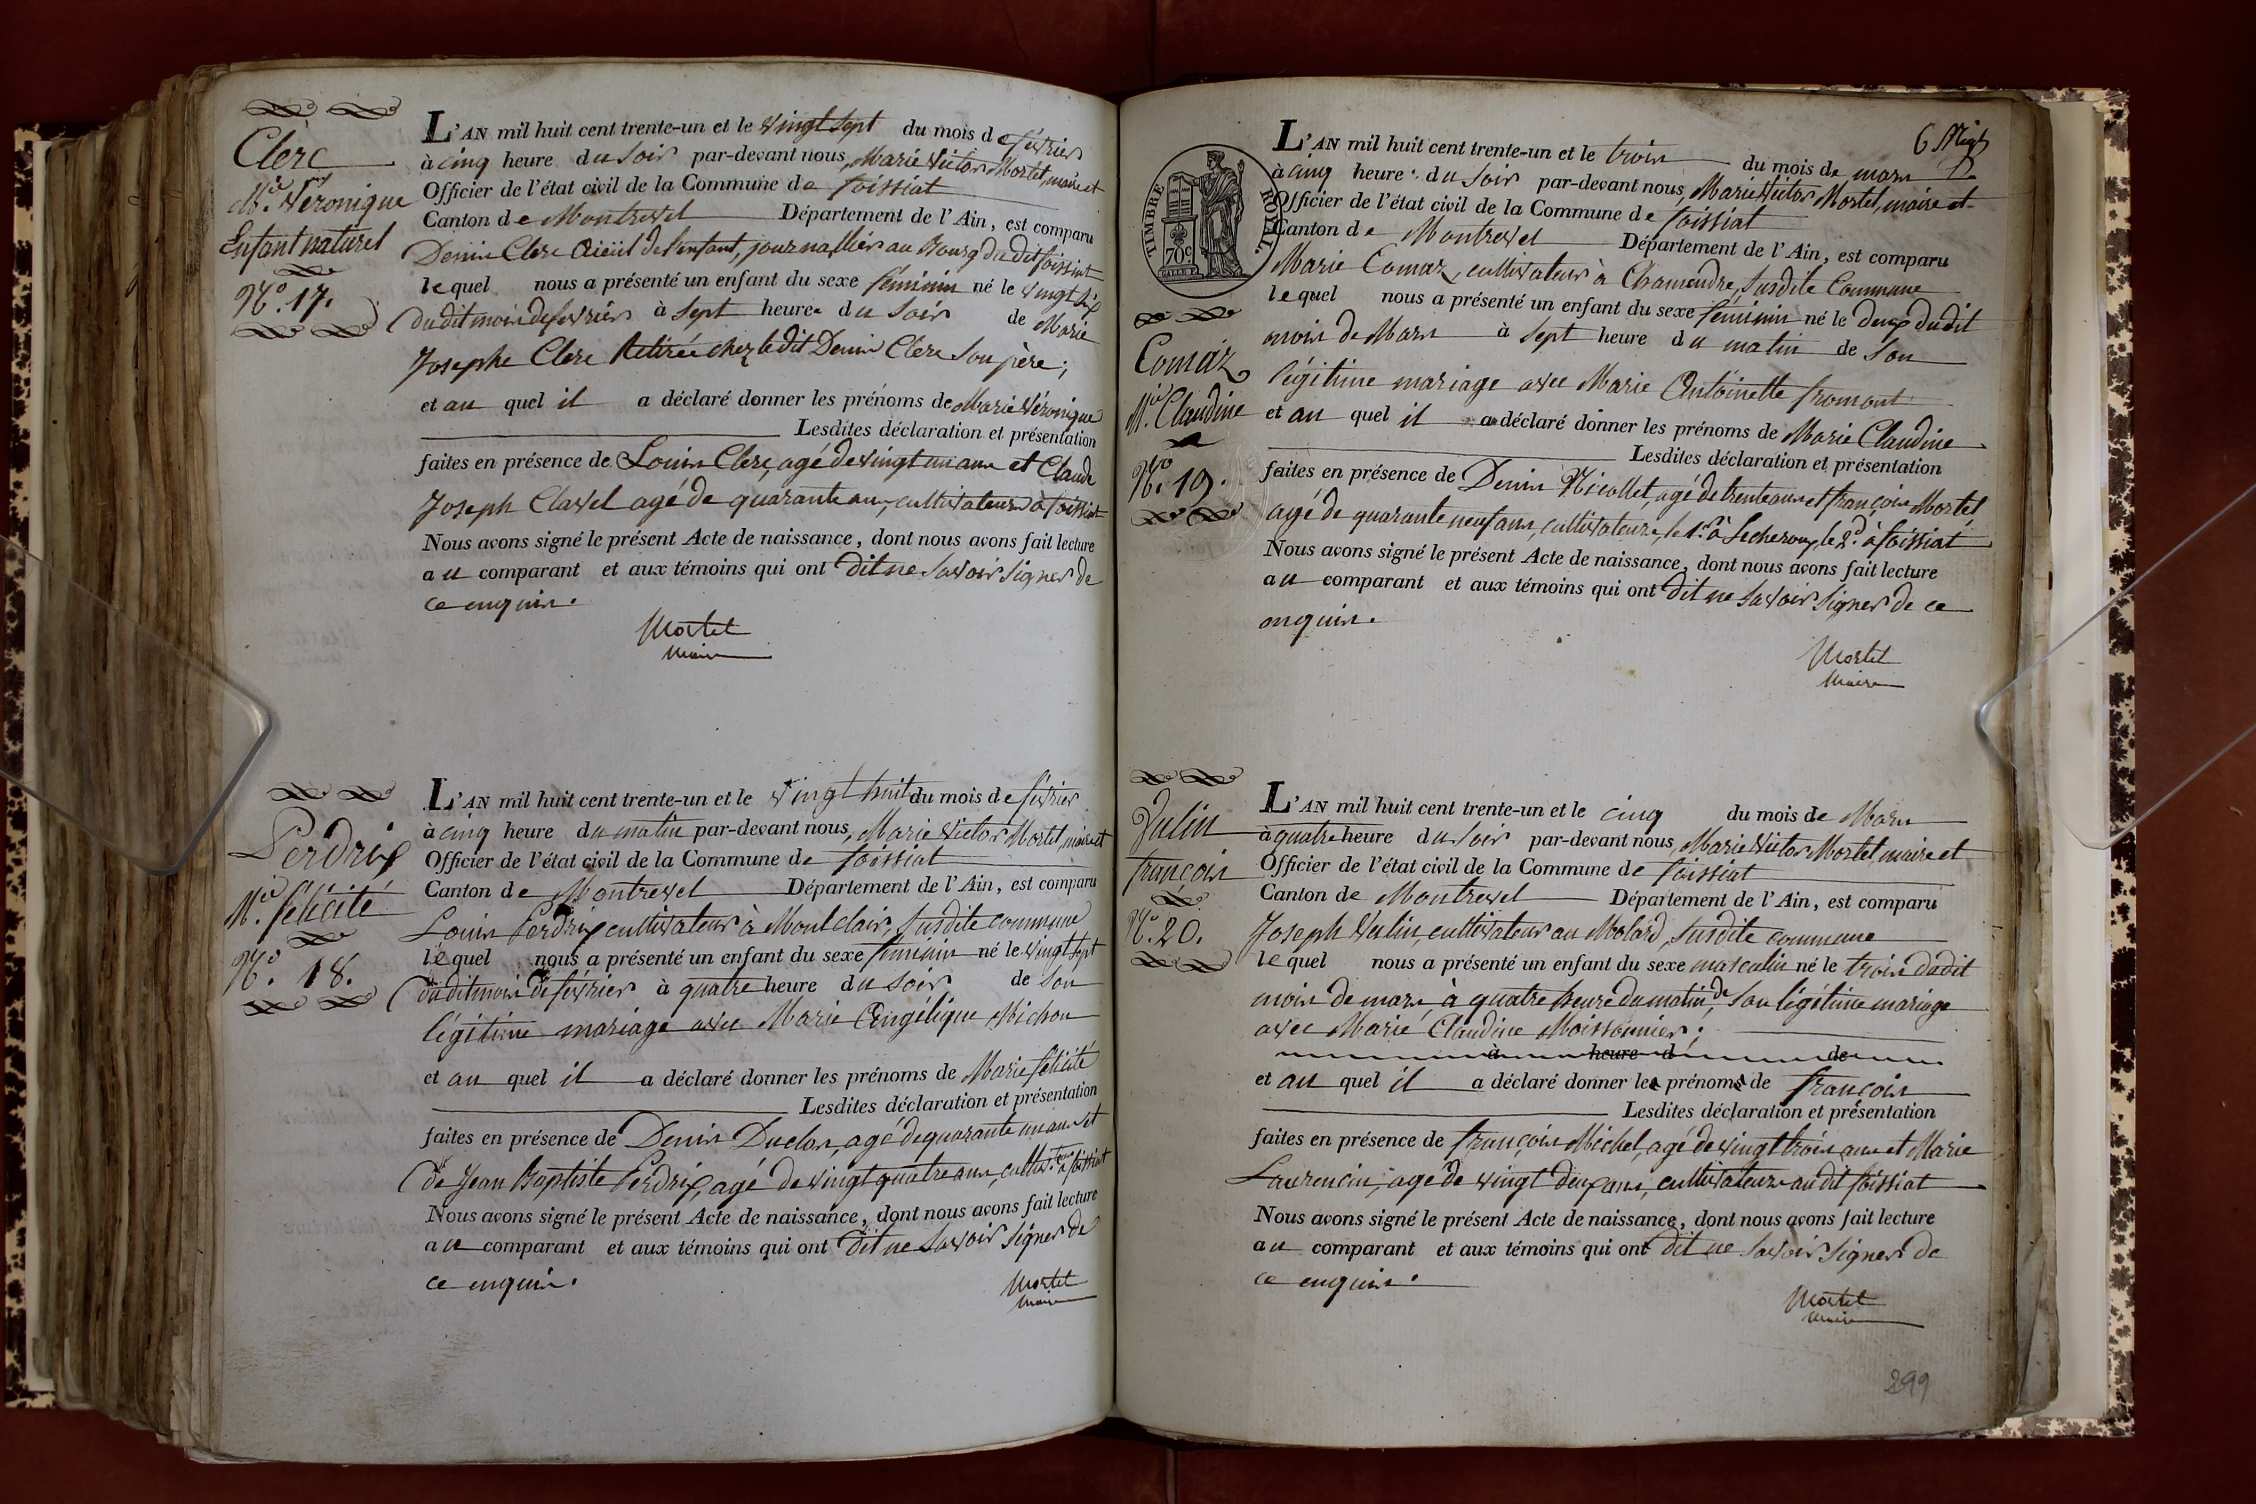 Clerc
M.ie Véronique
Enfant naturel
N.o 17.
L'AN mil huit cent trente-un et le vingt sept du mois de février
à cinq heure du soir par-devant nous, Marie Victor Mortel, maire et
Officier de l'état civil de la Commune de foissiat
Canton de Montrevel Département de l'Ain, est comparu
Denis Clerc Aieul de l'enfant, journallier au Bourg du dit foissiat
lequel nous a présenté un enfant du sexe féminin né le vingt six
du dit mois de février à sept heures du soir de Marie
Josephe Clerc Retirée chez le dit Denis Clerc Son père;
et au quel il a déclaré donner les prénoms de Marie Véronique
Lesdites déclaration et présentation
faites en présence de Louis Clerc, agé de vingt un ans et Claude
Joseph Clavel agé de quarante ans, cultivateurs à foissiat
Nous avons signé le présent Acte de naissance, dont nous avons fait lecture
au comparant et aux témoins qui ont dit ne Savoir Signer de
ce enquis.
Mortel
Maire
Perdrix
M.ie félicité
N.o 18.
L'AN mil huit cent trente-un et le vingt huit du mois de février
à cinq heure du matin par-devant nous, Marie Victor Mortel, maire et
Officier de l'état civil de la Commune de foissiat
Canton de Montrevel Département de l'Ain, est comparu
Louis Perdrix cultivateur à Montclair, Susdite commune
lequel nous a présenté un enfant du sexe féminin né le vingt sept
du dit mois de février à quatre heure du soir de Son
légitime mariage avec Marie Angélique Michon
et au quel il a déclaré donner les prénoms de Marie félicité
Lesdites déclaration et présentation
faites en présence de Denis Duclos, agé de quarante un ans et
de Jean Baptiste Perdrix, agé de vingt quatre ans, cultiv.teurs à foissiat
Nous avons signé le présent Acte de naissance, dont nous avons fait lecture
au comparant et aux témoins qui ont dit ne Savoir Signer de
ce enquis.
Mortel
Maire
TIMBRE ROYAL.
70c.
Comaz
M.ie Claudine
N.o 19.
L'AN mil huit cent trente-un et le trois du mois de mars
à cinq heure du Soir par-devant nous, Marie Victor Mortel, maire et
Officier de l'état civil de la Commune de foissiat
Canton de Montrevel Département de l'Ain, est comparu
Marie Comaz, cultivateur à Chamandre, Susdite Commune
lequel nous a présenté un enfant du sexe féminin né le deux du dit
mois de Mars à sept heure du matin de Son
légitime mariage avec Marie Antoinette fromont
et au quel il a déclaré donner les prénoms de Marie Claudine
Lesdites déclaration et présentation
faites en présence de Denis Nicollet, agé de trente ans et françois Mortel,
agé de quarante neuf ans, cultivateurs, le 1.er à Lecheroux, le 2.d à foissiat
Nous avons signé le présent Acte de naissance, dont nous avons fait lecture
au comparant et aux témoins qui ont dit ne Savoir Signer de ce
enquis.
Mortel
Maire
Vulin
françois
N.o 20.
L'AN mil huit cent trente-un et le cinq du mois de Mars
à quatre heure du soir par-devant nous, Marie Victor Mortel, maire et
Officier de l'état civil de la Commune de foissiat
Canton de Montrevel Département de l'Ain, est comparu
Joseph Vulin, cultivateur au Molard, Susdite commune
lequel nous a présenté un enfant du sexe masculin né le trois du dit
mois de mars à quatre heure du matin, de Son légitime mariage
avec Marie Claudine Moissonnier.
à heure d de
et au quel il a déclaré donner les prénoms de françois
Lesdites déclaration et présentation
faites en présence de françois Michel, agé de vingt trois ans et Marie
Laurencin, agé de vingt deux ans, cultivateurs au dit foissiat
Nous avons signé le présent Acte de naissance, dont nous avons fait lecture
au comparant et aux témoins qui ont dit ne Savoir Signer de
ce enquis.
Mortel
Maire
299